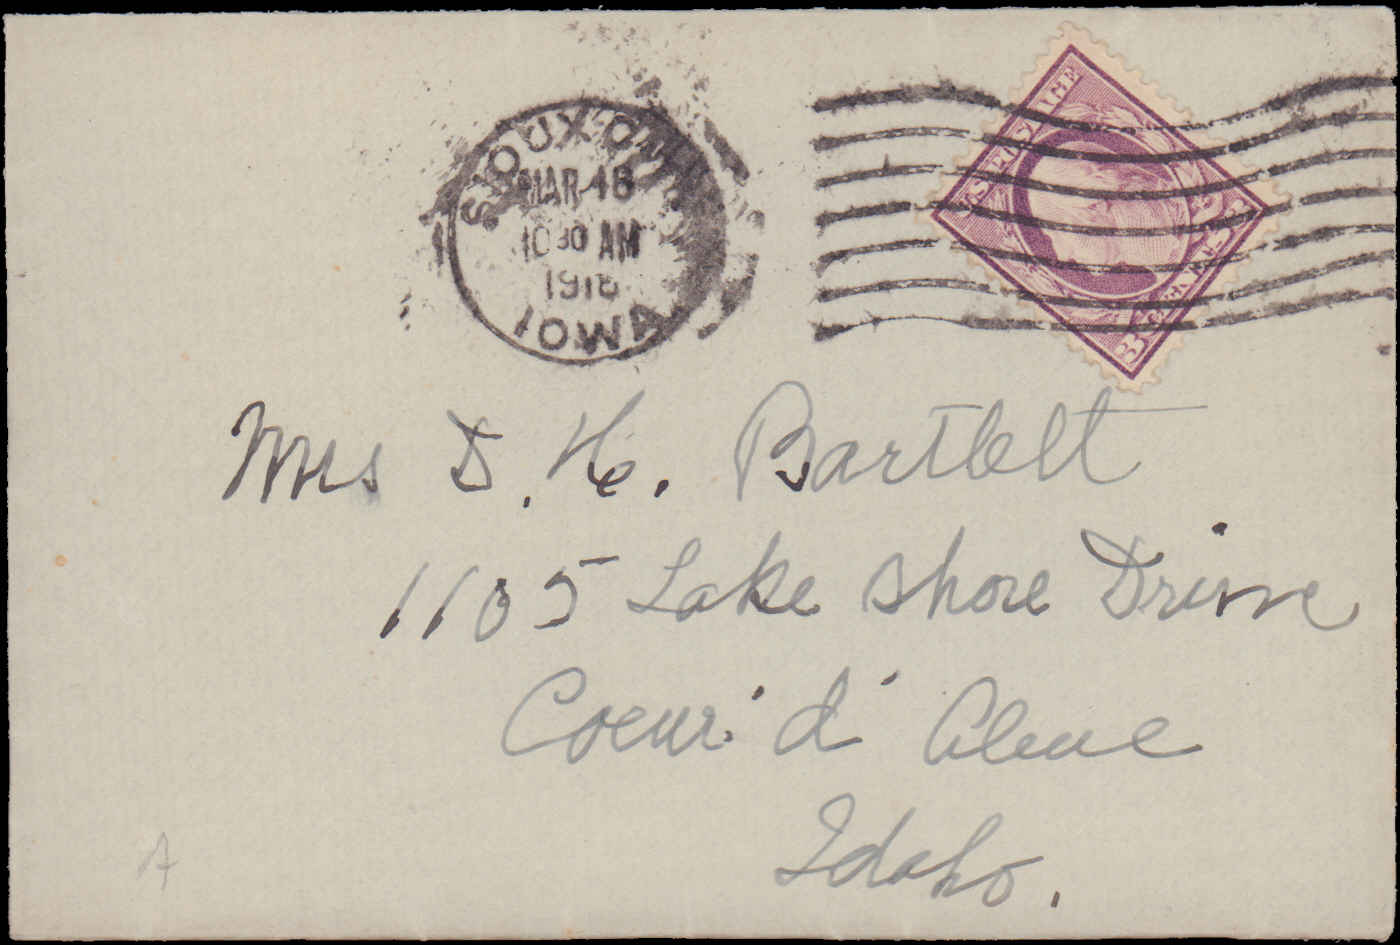 SIOUX CITY
MAR 18
10 30 AM
1918
IOWA
U.S. POSTAGE
3 CENTS 3
Mrs D. H. Bartlett
1105 Lake Shore Drive
Coeur' d' Alene
Idaho.
A